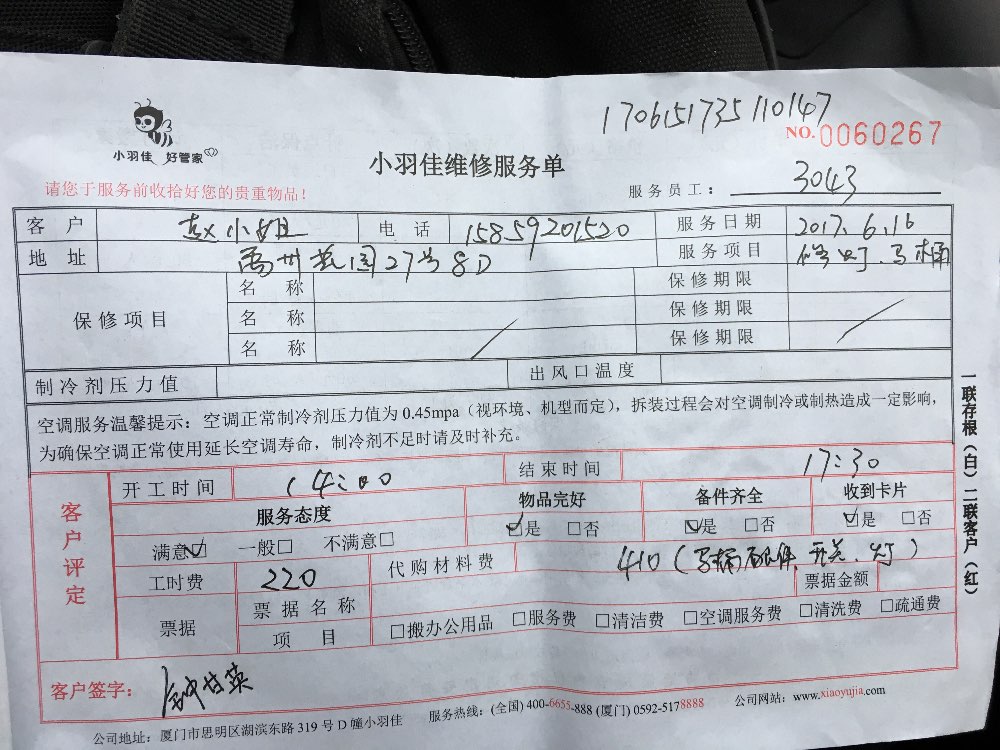 1706151735110147
小羽佳 好管家
NO.0060267
小羽佳维修服务单
请您于服务前收拾好您的贵重物品！
服务员工： 3043
客户 赵小姐 电话 15859201520 服务日期 2017.6.16
地址 禹州花园27号8D 服务项目 修灯、马桶
保修项目 名称 保修期限
名称 保修期限
名称 保修期限
制冷剂压力值 出风口温度
空调服务温馨提示：空调正常制冷剂压力值为0.45mpa（视环境、机型而定），拆装过程会对空调制冷或制热造成一定影响，
为确保空调正常使用延长空调寿命，制冷剂不足时请及时补充。
客户评定
开工时间 14:00 结束时间 17:30
服务态度 物品完好 备件齐全 收到卡片
满意☑ 一般□ 不满意□ ☑是 □否 ☑是 □否 ☑是 □否
工时费 220 代购材料费 410（马桶配件、开关、灯）
票据 票据名称 票据金额
项目 □搬办公用品 □服务费 □清洁费 □空调服务费 □清洗费 □疏通费
客户签字：
公司地址：厦门市思明区湖滨东路319号D幢小羽佳 服务热线：(全国)400-6655-888 (厦门)0592-5178888 公司网站：www.xiaoyujia.com
一联存根（白）二联客户（红）